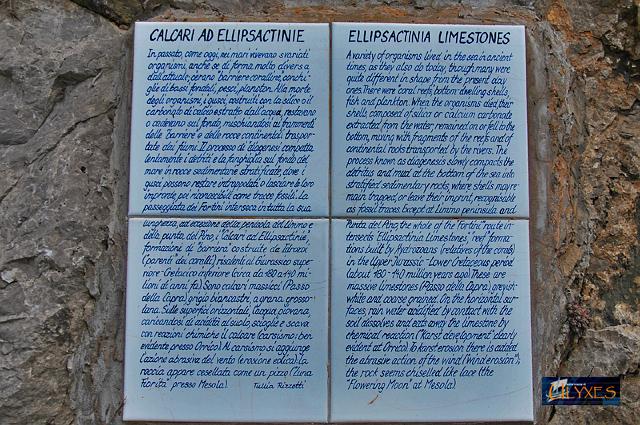 CALCARI AD ELLIPSACTINIE
In passato, come oggi, nei mari vivevano svariati
organismi, anche se di forma molto diversa
dall'attuale; c'erano barriere coralline, conchi-
glie di bassi fondali, pesci, plancton. Alla morte
degli organismi, i gusci, costruiti con la silice o il
carbonato di calcio estratto dall'acqua, restavano
o cadevano sul fondo, mischiandosi ai frammenti
delle barriere o delle rocce continentali traspor-
tate dai fiumi. Il processo di diagenesi compatta
lentamente i detriti e la fanghiglia sul fondo del
mare in rocce sedimentarie stratificate, dove i
gusci possono restare intrappolati o lasciare le loro
impronte, poi riconoscibili come tracce fossili. La
passeggiata dei Fortini interseca in tutta la sua
lunghezza, ad eccezione della penisola del Limmo e
della punta del Pino, i Calcari ad Ellipsactinie,
formazioni di barriera costruite da idrozoi
(parenti dei coralli) risalenti al Giurassico supe-
riore-Cretacico inferiore (circa da 180 a 140 mi-
lioni di anni fa). Sono calcari massicci (Passo
della Capra) grigio biancastri, a grana grosso-
lana. Sulle superfici orizzontali, l'acqua piovana,
caricandosi di acidità al suolo, scioglie e scava
con reazioni chimiche il calcare (carsismo: ben
evidente presso Orrico). Al carsismo si aggiunge
l'azione abrasiva del vento (erosione eolica): la
roccia appare cesellata come un pizzo ("Luna
Fiorita" presso Mesola). Tullia Rizzotti
ELLIPSACTINIA LIMESTONES
A variety of organisms lived in the sea in ancient
times, as they also do today, though many were
quite different in shape from the present day
ones. There were coral reefs, bottom-dwelling shells,
fish and plankton. When the organisms died, their
shells, composed of silica or calcium carbonate
extracted from the water, remained on or fell to the
bottom, mixing with fragments of the reefs and of
continental rocks transported by the rivers. The
process known as diagenesis slowly compacts the
detritus and mud at the bottom of the sea into
stratified sedimentary rocks, where shells may re-
main trapped, or leave their imprint, recognisable
as fossil traces. Except at Limmo peninsula and
Punta del Pino, the whole of the "Fortini" route in-
tersects Ellipsactinia Limestones, reef forma-
tions built by Hydrozoans (relatives of the corals)
in the Upper Jurassic - Lower Cretaceous period
(about 180-140 million years ago). These are
massive limestones (Passo della Capra), greyish-
white and coarse grained. On the horizontal sur-
faces, rain water acidified by contact with the
soil dissolves and eats away the limestone by
chemical reaction ("Karst development" clearly
evident at Orrico). To karst erosion there is added
the abrasive action of the wind ("wind erosion"):
the rock seems chiselled like lace (the
"Flowering Moon" at Mesola).
ULYXES